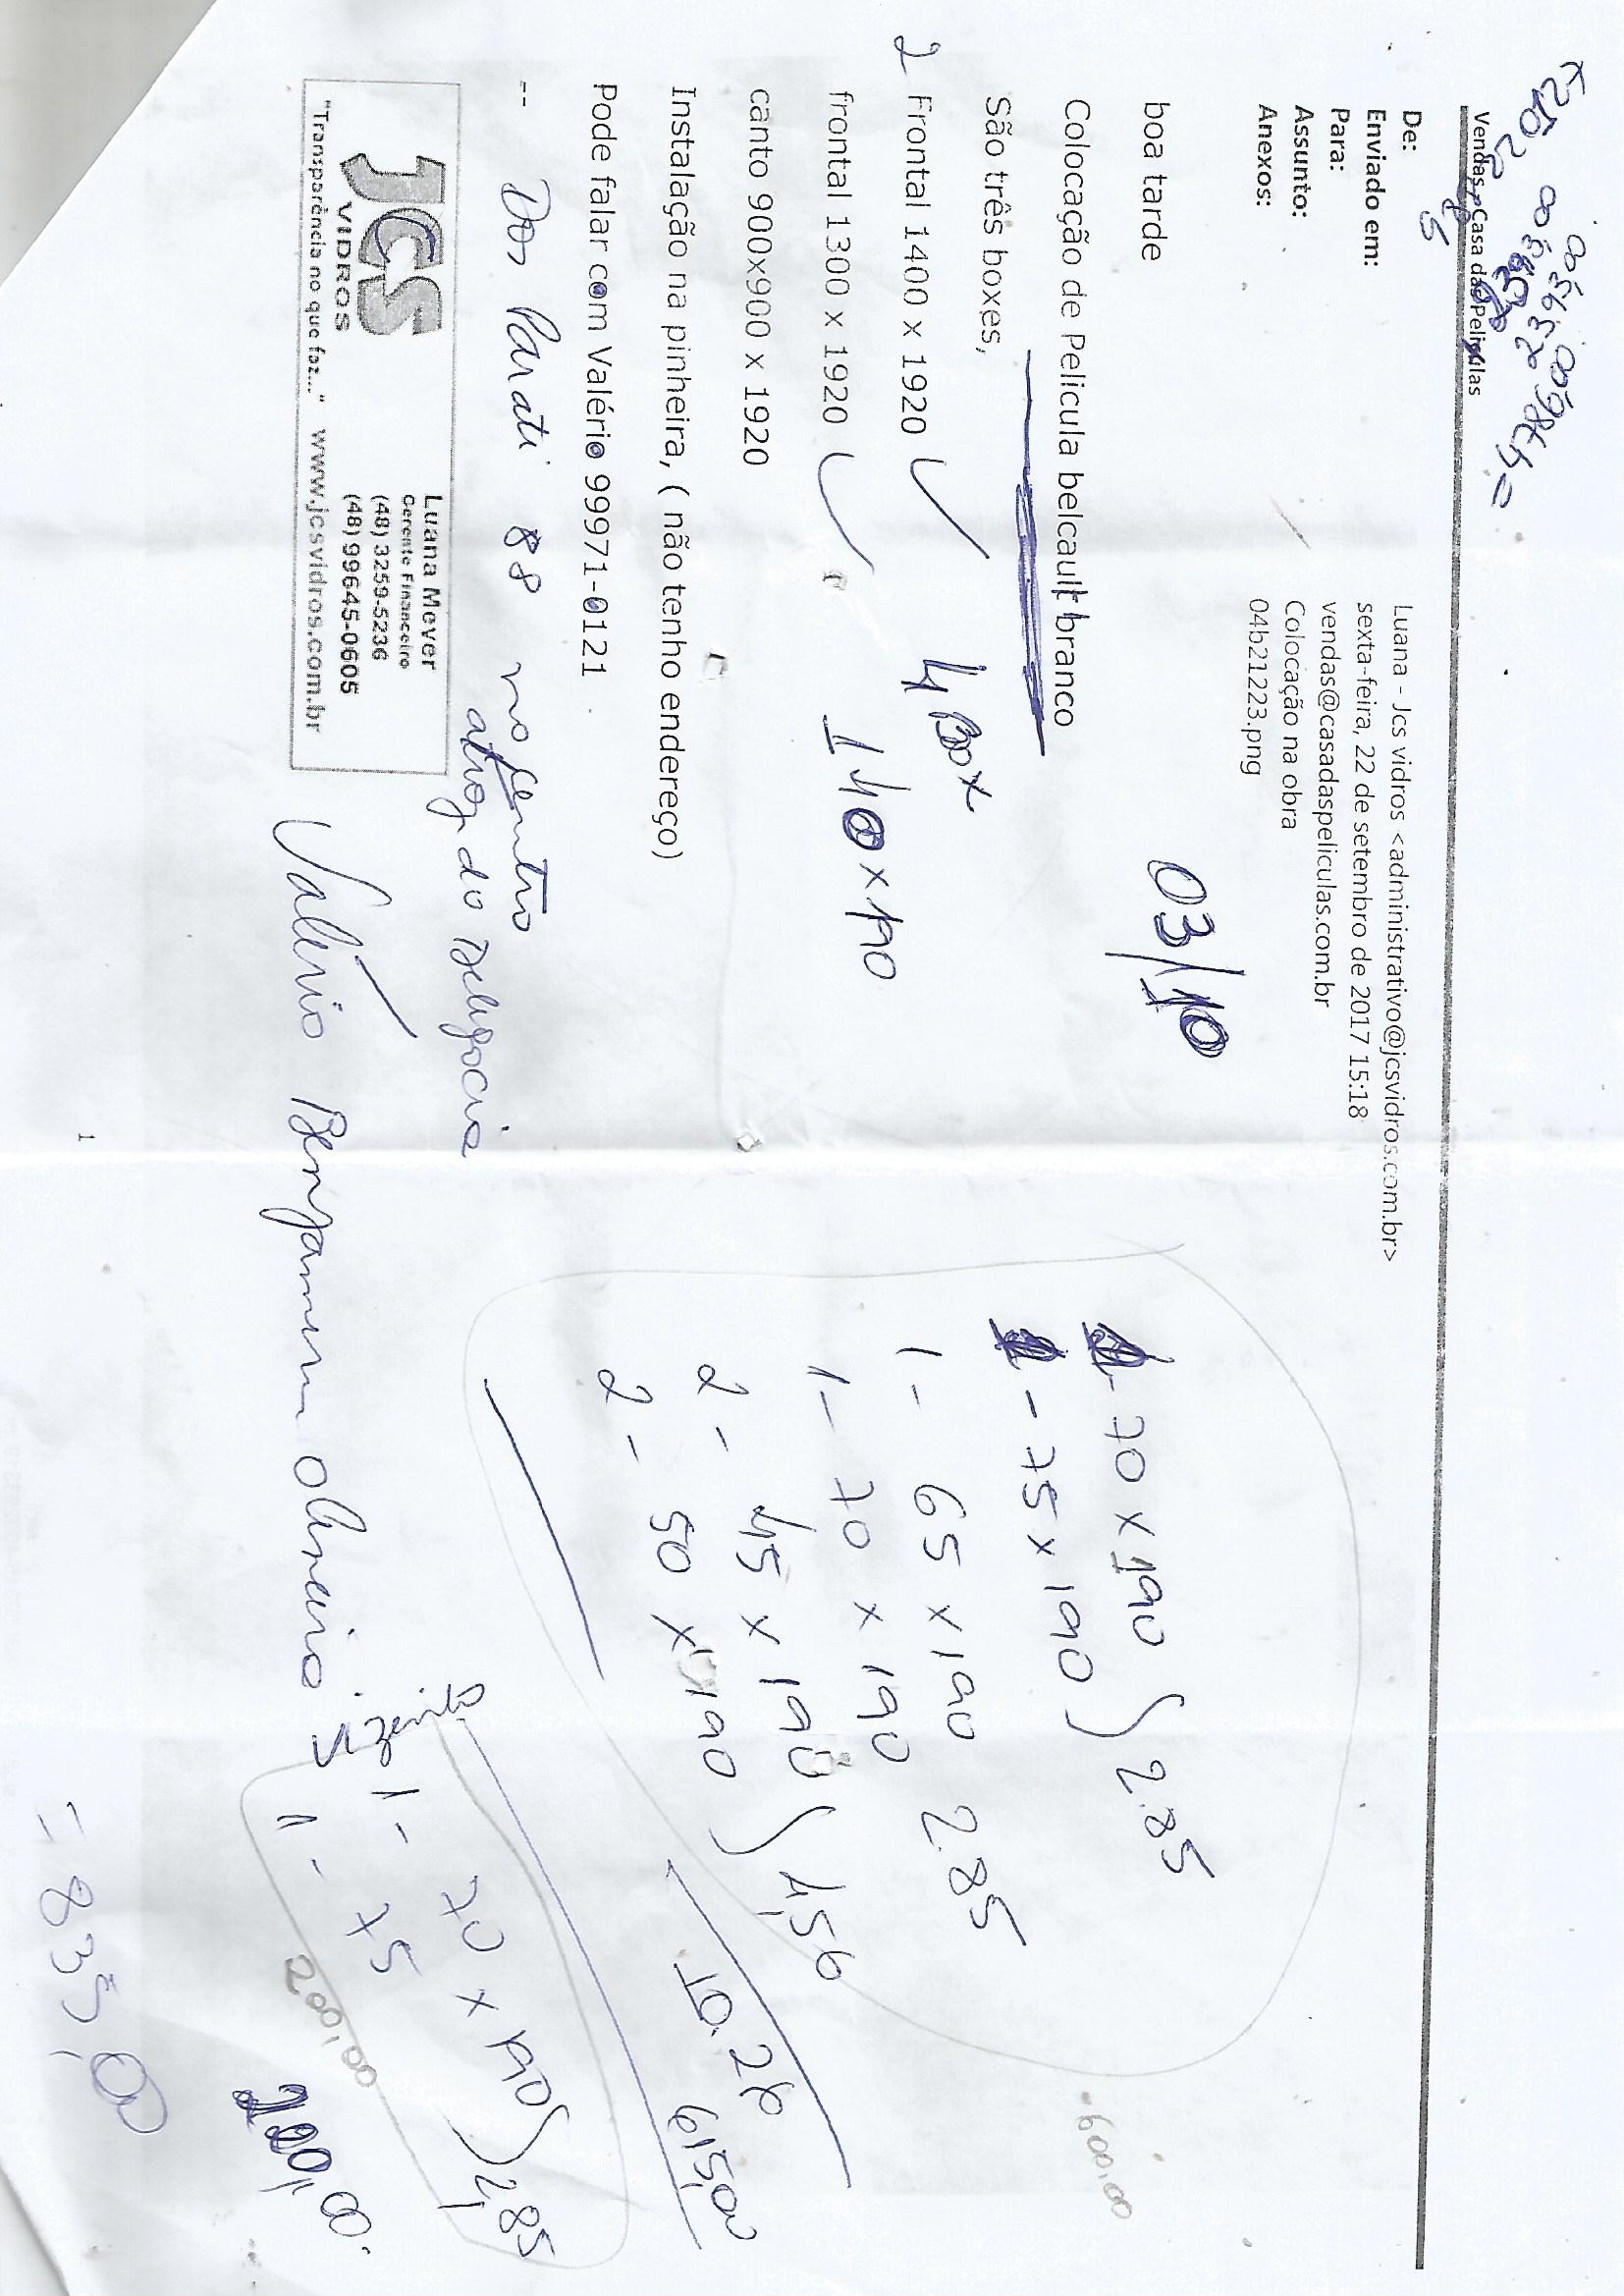 Vendas Casa das Peliculas
De: Luana - Jcs vidros <administrativo@jcsvidros.com.br>
Enviado em: sexta-feira, 22 de setembro de 2017 15:18
Para: vendas@casadaspeliculas.com.br
Assunto: Colocação na obra
Anexos: 04b21223.png
boa tarde
03/10
Colocação de Pelicula belcault branco
São três boxes,
2 Frontal 1400 x 1920
frontal 1300 x 1920
140x190
canto 900x900 x 1920
Instalação na pinheira, ( não tenho endereço)
Pode falar com Valério 99971-0121
--
Dos Parati 88 no Centro
atraz do
JCS
VIDROS
Luana Meyer
Gerente Financeiro
(48) 3259-5236
(48) 99645-0605
"Transparência no que faz..." www.jcsvidros.com.br
Valério
70 x 190
- 75 x 190 } 2.85
1 - 65 x 190 2.85
1 - 70 x 190
2 - 45 x 190
2 - 50 x 190 } 4,56
10.26
615,00
600,00
1 - 70 x 190
1 - 75 } 2,85
200,00
200,00
= 835,00
1